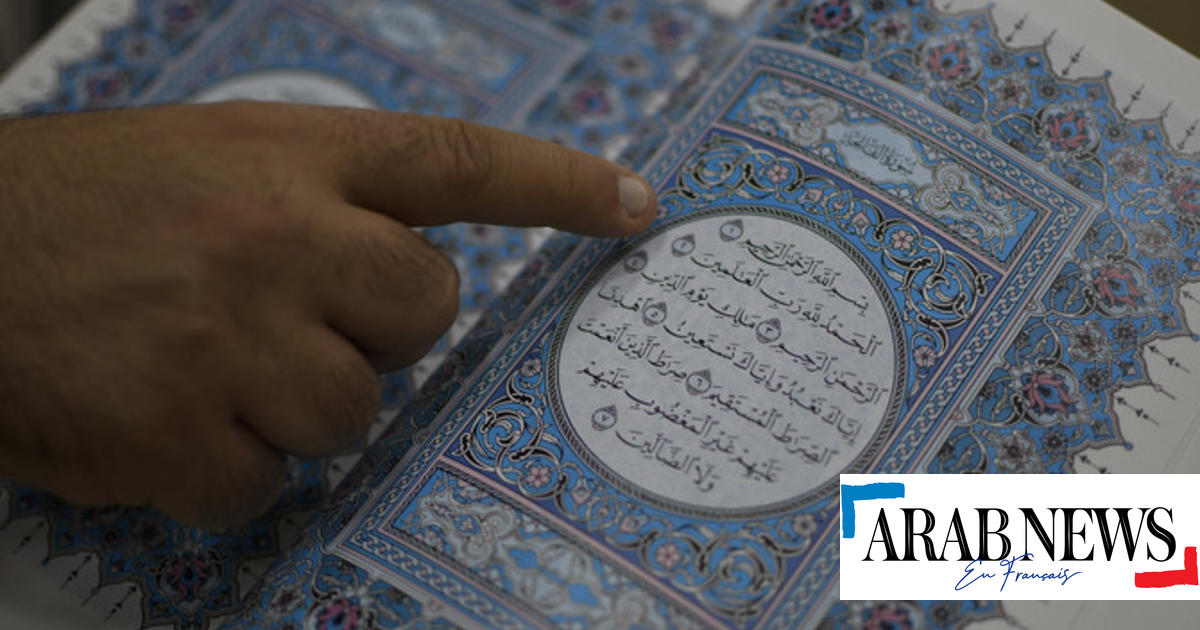 سُورَةُ الْفَاتِحَةِ
بِسْمِ ٱللَّهِ ٱلرَّحْمَٰنِ ٱلرَّحِيمِ ١
ٱلْحَمْدُ لِلَّهِ رَبِّ ٱلْعَٰلَمِينَ ٢
ٱلرَّحْمَٰنِ ٱلرَّحِيمِ ٣ مَٰلِكِ يَوْمِ ٱلدِّينِ ٤
إِيَّاكَ نَعْبُدُ وَإِيَّاكَ نَسْتَعِينُ ٥ ٱهْدِنَا
ٱلصِّرَٰطَ ٱلْمُسْتَقِيمَ ٦ صِرَٰطَ ٱلَّذِينَ أَنْعَمْتَ
عَلَيْهِمْ غَيْرِ ٱلْمَغْضُوبِ عَلَيْهِمْ
وَلَا ٱلضَّآلِّينَ ٧
ARAB NEWS
En Français